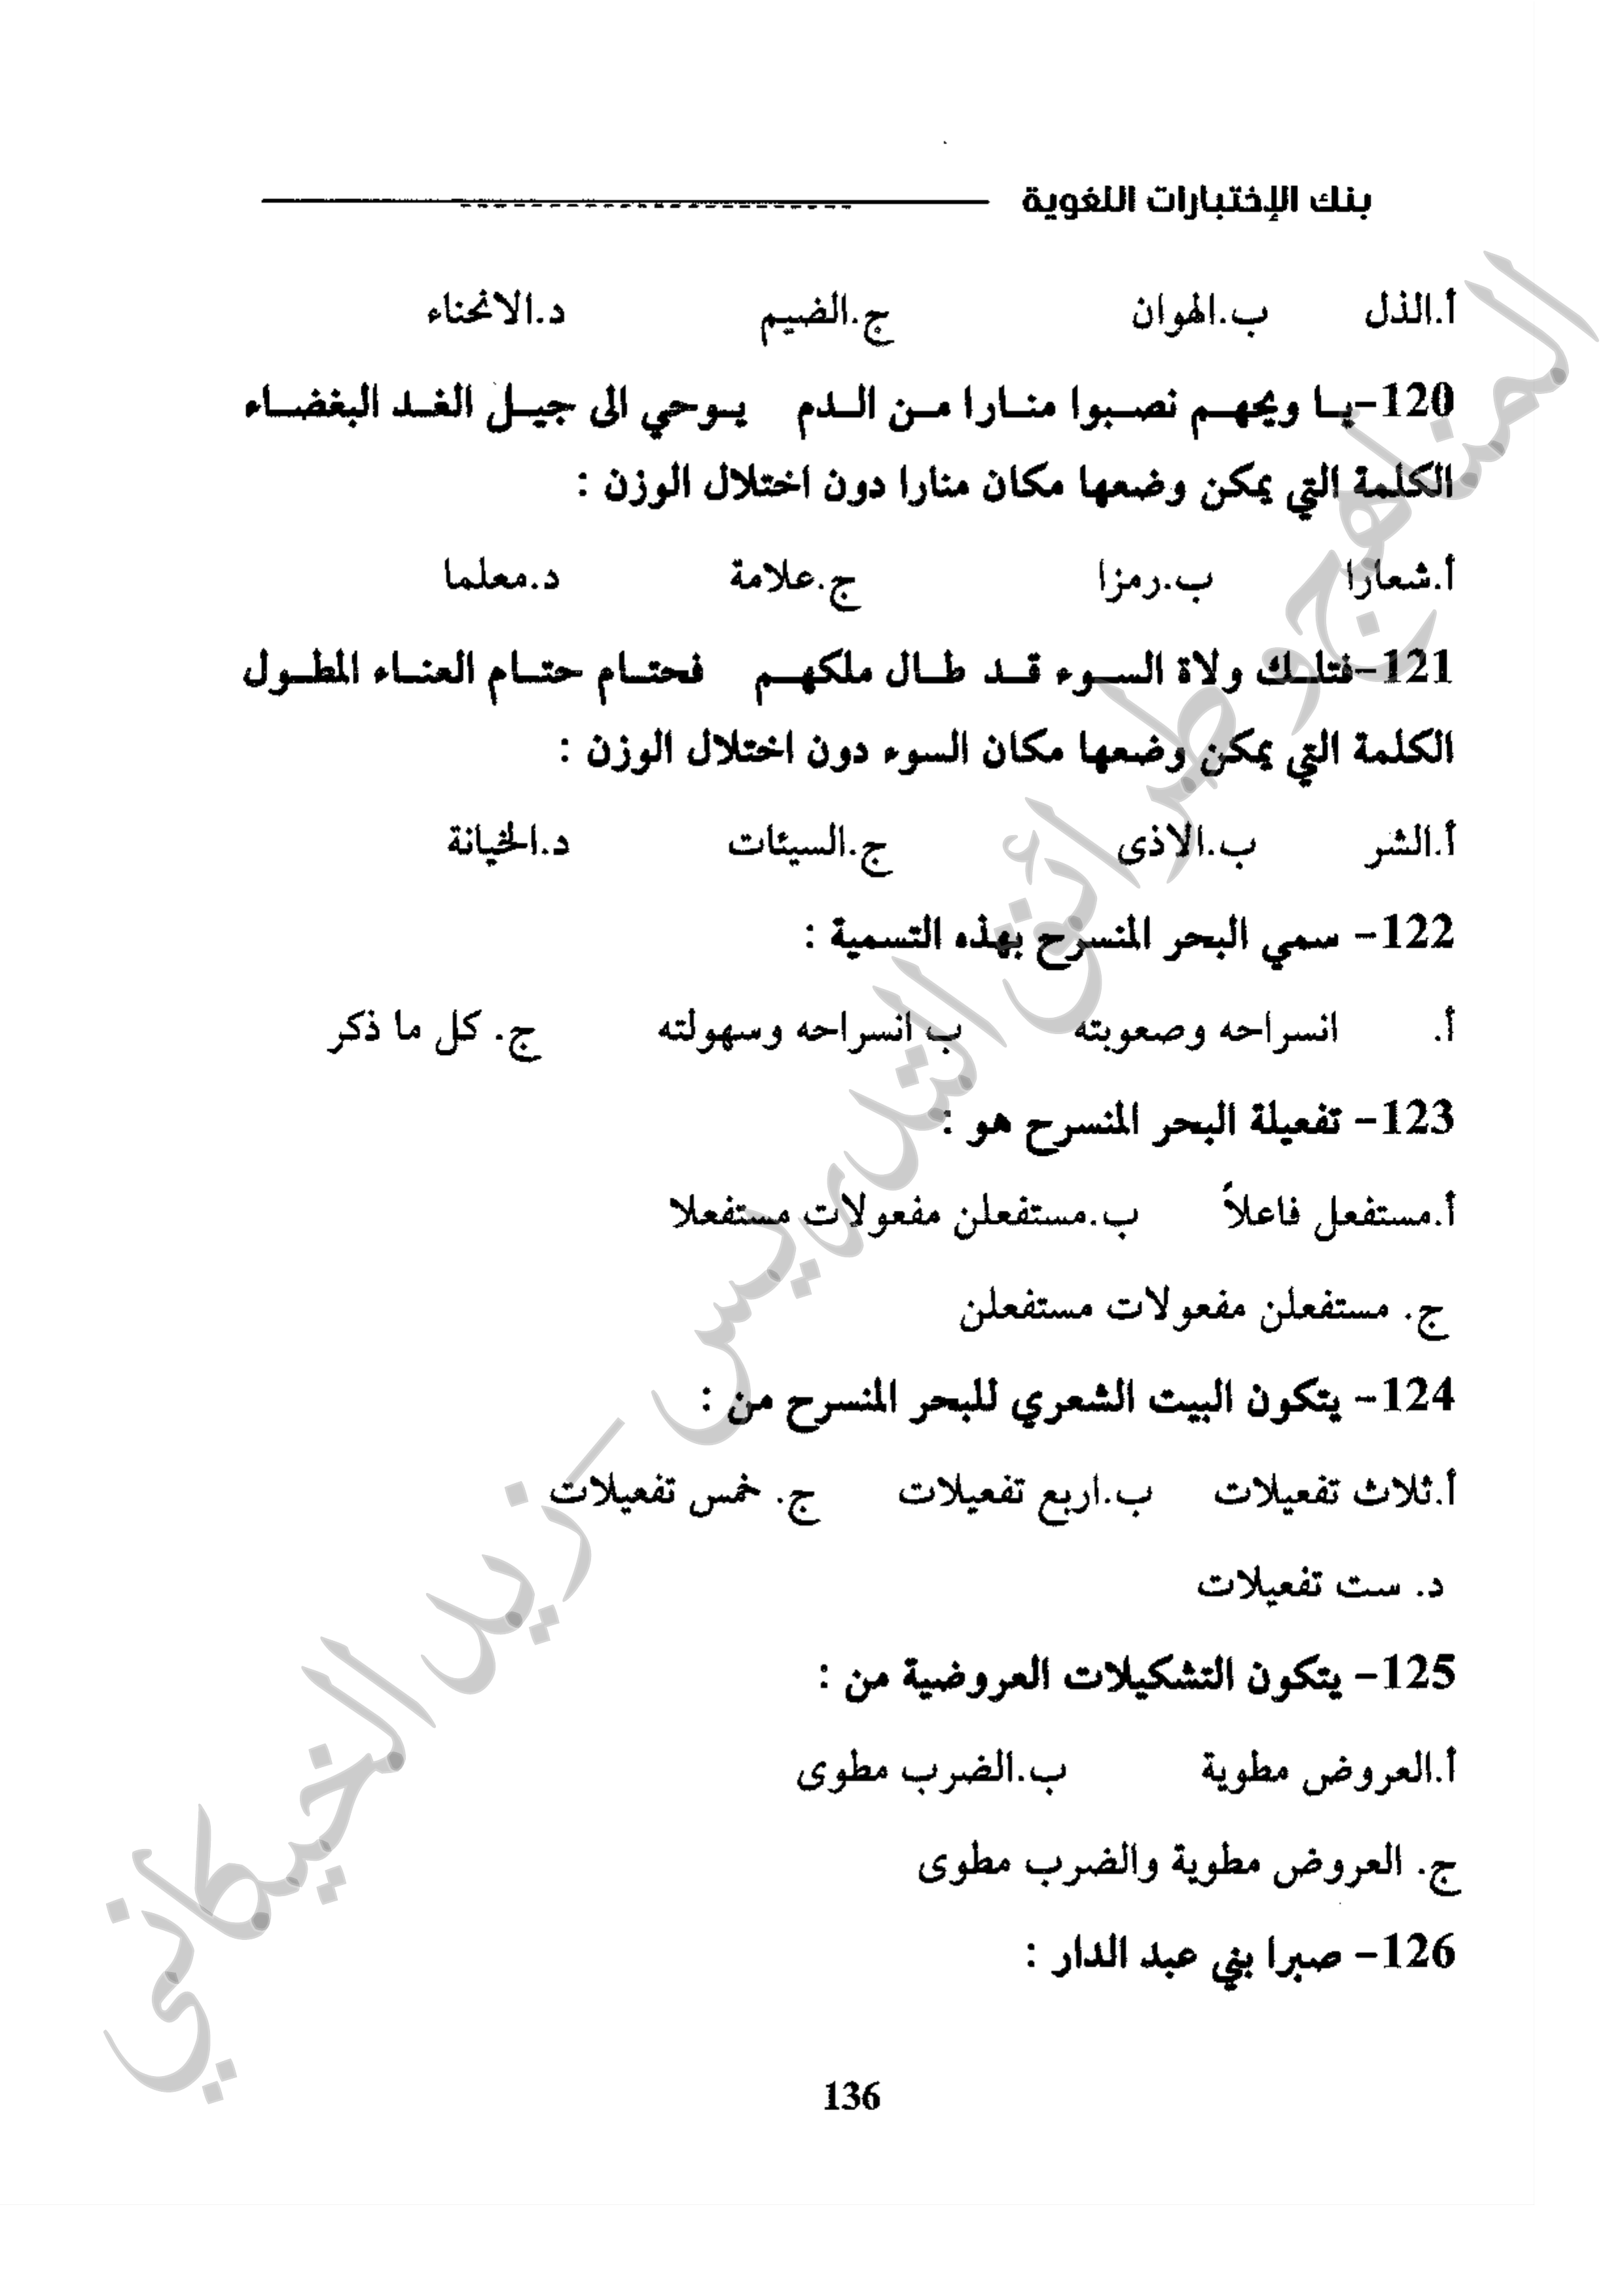 بنك الإختبارات اللغوية
أ.الذل ب.الهوان ج.الضيم د.الانحناء
120-يا ويحهم نصبوا منارا من الدم يوحي الى جيل الغد البغضاء
الكلمة التي يمكن وضعها مكان منارا دون اختلال الوزن :
أ.شعارا ب.رمزا ج.علامة د.معلما
121-فتلك ولاة السوء قد طال ملكهم فحتام حتام العناء المطول
الكلمة التي يمكن وضعها مكان السوء دون اختلال الوزن :
أ.الشر ب.الاذى ج.السيئات د.الخيانة
122- سمي البحر المنسرح بهذه التسمية :
أ. انسراحه وصعوبته ب انسراحه وسهولته ج. كل ما ذكر
123- تفعيلة البحر المنسرح هو :
أ.مستفعل فاعلاً ب.مستفعلن مفعولات مستفعلا
ج. مستفعلن مفعولات مستفعلن
124- يتكون البيت الشعري للبحر المنسرح من :
أ.ثلاث تفعيلات ب.اربع تفعيلات ج. خمس تفعيلات
د. ست تفعيلات
125- يتكون التشكيلات العروضية من :
أ.العروض مطوية ب.الضرب مطوى
ج. العروض مطوية والضرب مطوى
126- صبرا بني عبد الدار :
136
المناهج وطرائق التدريس - زيد الخيكاني